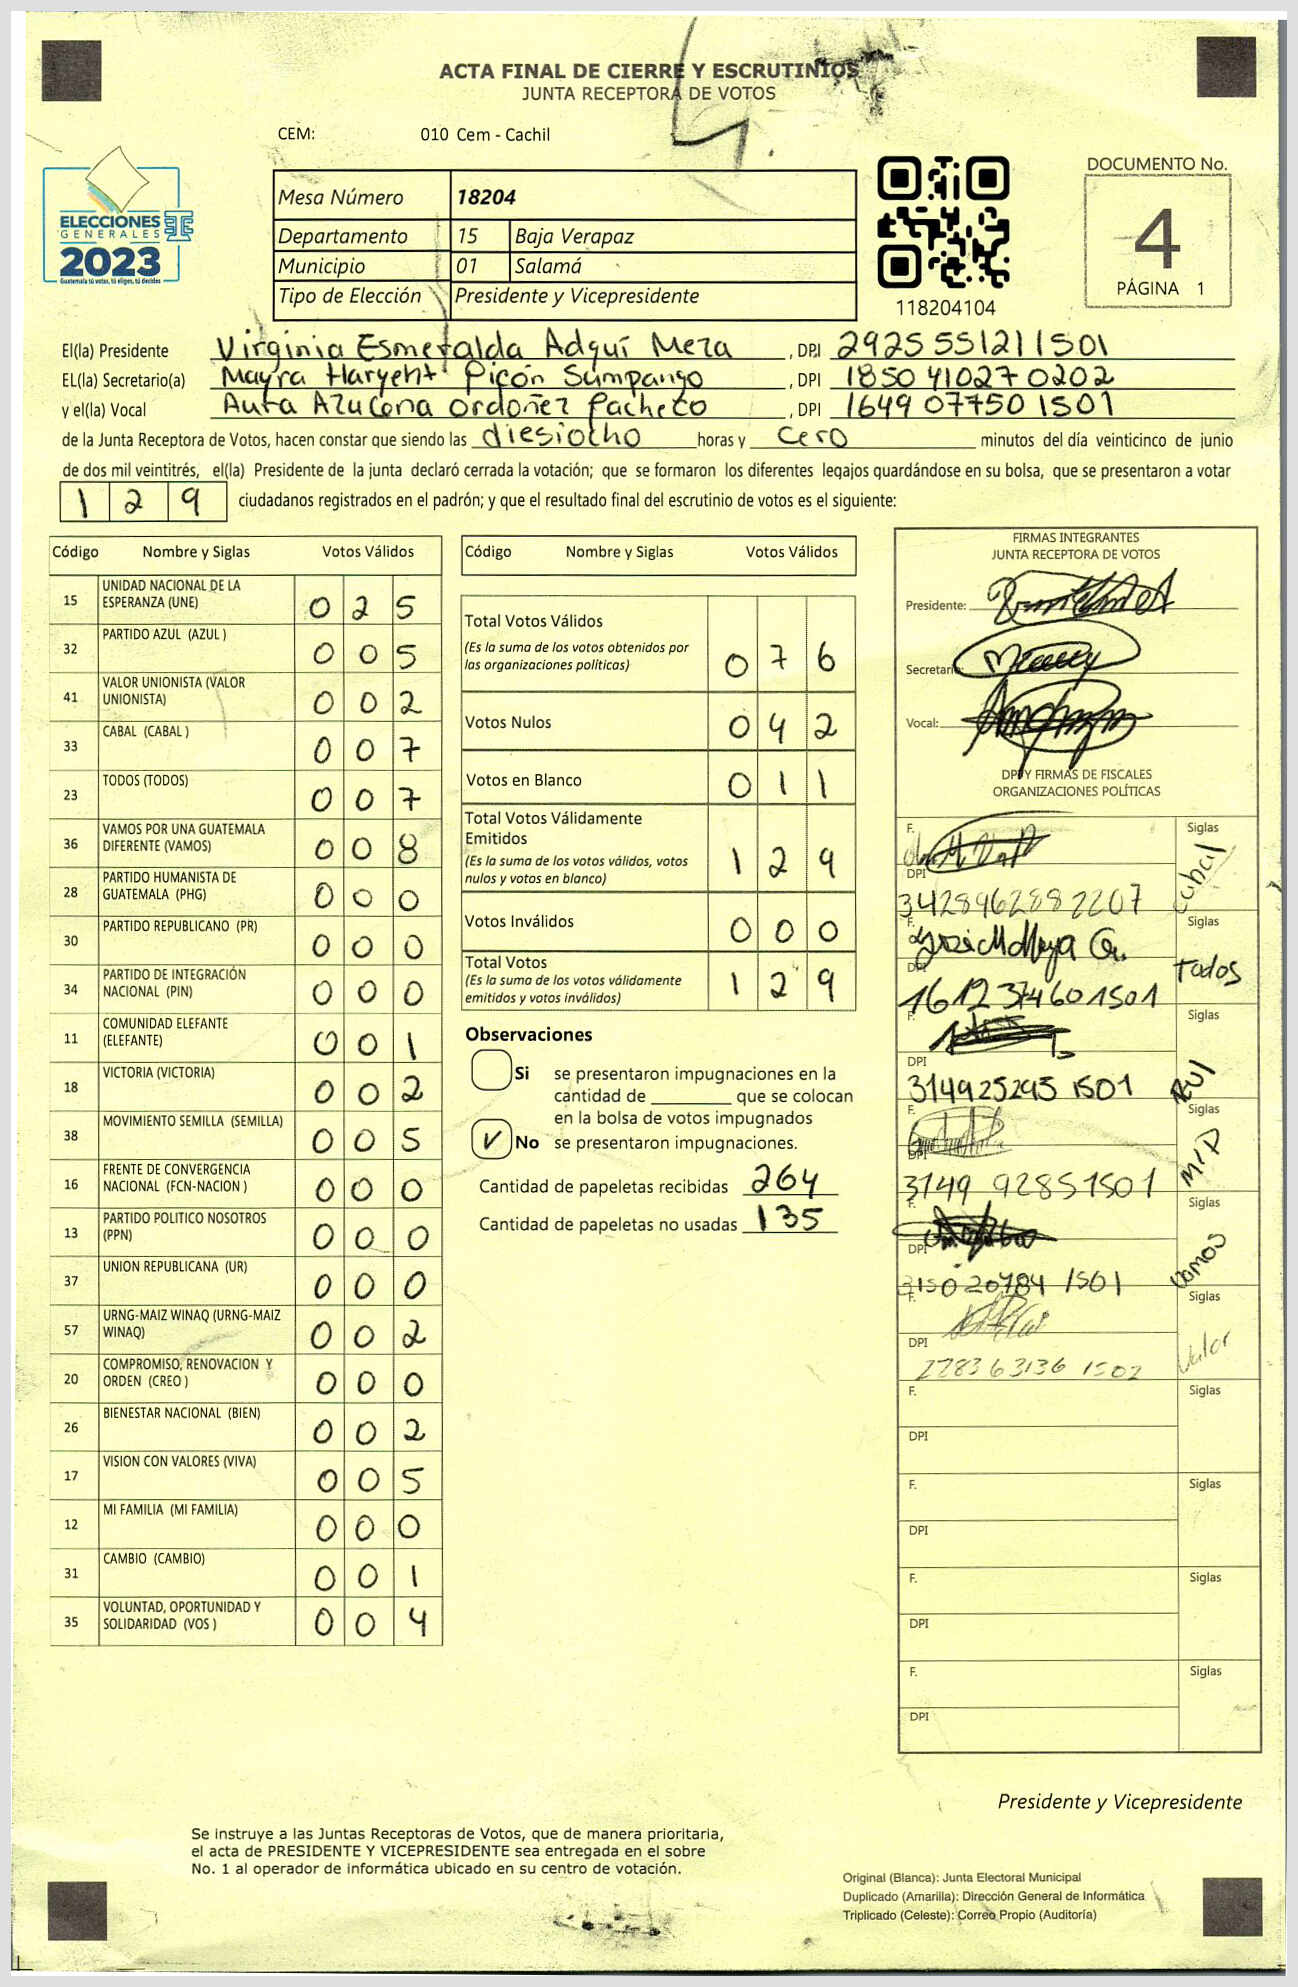 ACTA FINAL DE CIERRE Y ESCRUTINIOS
JUNTA RECEPTORA DE VOTOS
CEM: 010 Cem - Cachil
ELECCIONES
GENERALES
2023
Guatemala tú votas, tú eliges, tú decides
Mesa Número 18204
Departamento 15 Baja Verapaz
Municipio 01 Salamá
Tipo de Elección Presidente y Vicepresidente
118204104
DOCUMENTO No.
4
PÁGINA 1
El(la) Presidente Virginia Esmeralda Adquí Meza, DPI 2925 55121 1501
EL(la) Secretario(a) Mayra Haryeht Picón Sumpango, DPI 1850 41027 0202
y el(la) Vocal Aura Azucena Ordoñez Pacheco, DPI 1649 07750 1501
de la Junta Receptora de Votos, hacen constar que siendo las diesiocho horas y cero minutos del día veinticinco de junio
de dos mil veintitrés, el(la) Presidente de la junta declaró cerrada la votación; que se formaron los diferentes legajos quardándose en su bolsa, que se presentaron a votar
1 2 9 ciudadanos registrados en el padrón; y que el resultado final del escrutinio de votos es el siguiente:
Código Nombre y Siglas Votos Válidos
15 UNIDAD NACIONAL DE LA ESPERANZA (UNE) 0 2 5
32 PARTIDO AZUL (AZUL ) 0 0 5
41 VALOR UNIONISTA (VALOR UNIONISTA) 0 0 2
33 CABAL (CABAL ) 0 0 7
23 TODOS (TODOS) 0 0 7
36 VAMOS POR UNA GUATEMALA DIFERENTE (VAMOS) 0 0 8
28 PARTIDO HUMANISTA DE GUATEMALA (PHG) 0 0 0
30 PARTIDO REPUBLICANO (PR) 0 0 0
34 PARTIDO DE INTEGRACIÓN NACIONAL (PIN) 0 0 0
11 COMUNIDAD ELEFANTE (ELEFANTE) 0 0 1
18 VICTORIA (VICTORIA) 0 0 2
38 MOVIMIENTO SEMILLA (SEMILLA) 0 0 5
16 FRENTE DE CONVERGENCIA NACIONAL (FCN-NACION ) 0 0 0
13 PARTIDO POLITICO NOSOTROS (PPN) 0 0 0
37 UNION REPUBLICANA (UR) 0 0 0
57 URNG-MAIZ WINAQ (URNG-MAIZ WINAQ) 0 0 2
20 COMPROMISO, RENOVACION Y ORDEN (CREO ) 0 0 0
26 BIENESTAR NACIONAL (BIEN) 0 0 2
17 VISION CON VALORES (VIVA) 0 0 5
12 MI FAMILIA (MI FAMILIA) 0 0 0
31 CAMBIO (CAMBIO) 0 0 1
35 VOLUNTAD, OPORTUNIDAD Y SOLIDARIDAD (VOS ) 0 0 4
Código Nombre y Siglas Votos Válidos
Total Votos Válidos
(Es la suma de los votos obtenidos por
las organizaciones políticas) 0 7 6
Votos Nulos 0 4 2
Votos en Blanco 0 1 1
Total Votos Válidamente
Emitidos
(Es la suma de los votos válidos, votos
nulos y votos en blanco) 1 2 9
Votos Inválidos 0 0 0
Total Votos
(Es la suma de los votos válidamente
emitidos y votos inválidos) 1 2 9
Observaciones
Si se presentaron impugnaciones en la
cantidad de ________ que se colocan
en la bolsa de votos impugnados
No se presentaron impugnaciones.
Cantidad de papeletas recibidas 264
Cantidad de papeletas no usadas 135
FIRMAS INTEGRANTES
JUNTA RECEPTORA DE VOTOS
Presidente:
Secretario:
Vocal:
DPI Y FIRMAS DE FISCALES
ORGANIZACIONES POLÍTICAS
F. Siglas Cabal
DPI
3428962882207
F. Siglas Todos
DPI
1612374601501
F. Siglas
DPI
314925295 1501
F. Siglas
DPI
3149 92851501
F. Siglas Vamos
DPI
315020784 1501
F. Siglas Valor
DPI
228363136 1502
F. Siglas
DPI
F. Siglas
DPI
F. Siglas
DPI
F. Siglas
DPI
Presidente y Vicepresidente
Se instruye a las Juntas Receptoras de Votos, que de manera prioritaria,
el acta de PRESIDENTE Y VICEPRESIDENTE sea entregada en el sobre
No. 1 al operador de informática ubicado en su centro de votación.
Original (Blanca): Junta Electoral Municipal
Duplicado (Amarilla): Dirección General de Informática
Triplicado (Celeste): Correo Propio (Auditoría)